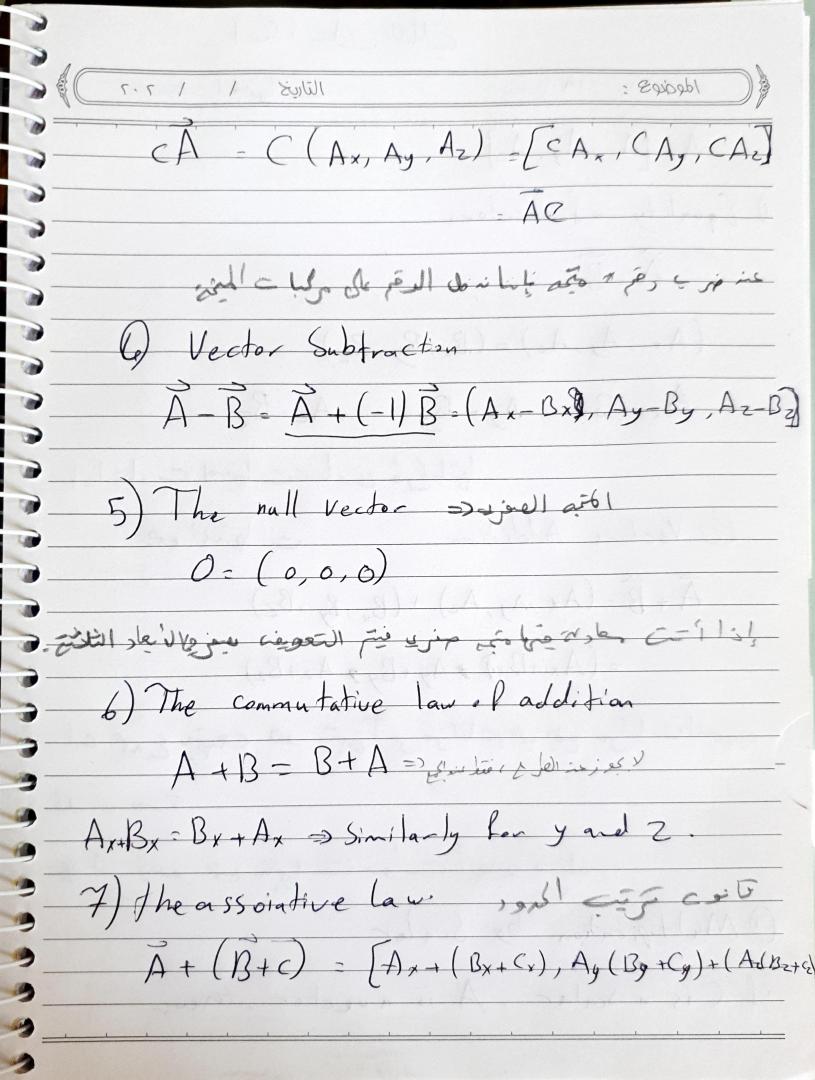 الموضوع : التاريخ / / ٢٠٢
cA⃗ = C (Ax, Ay, Az) = [cAx, CAy, CAz]
= A⃗C
عند ضرب رقم * متجه فإننا ندخل الرقم على مركبات المتجه
4) Vector Subtraction
A⃗ - B⃗ = A⃗ + (-1) B⃗ = (Ax-Bx), Ay-By, Az-Bz]
5) The null vector => المتجه الصفري
0 = (0,0,0)
إذا أتت معادلة فيها متجه صفري فيتم التعويض بصفر بالأبعاد الثلاثة.
6) The commutative law of addition
A + B = B + A => لا يجوز عند الطرح، فقط
Ax+Bx = Bx + Ax => Similarly for y and z.
7) the assoiative law. قانون ترتيب الحدود
A⃗ + (B⃗+C⃗) = [Ax + (Bx+Cx), Ay(By+Cy)+(Az(Bz+Cz)